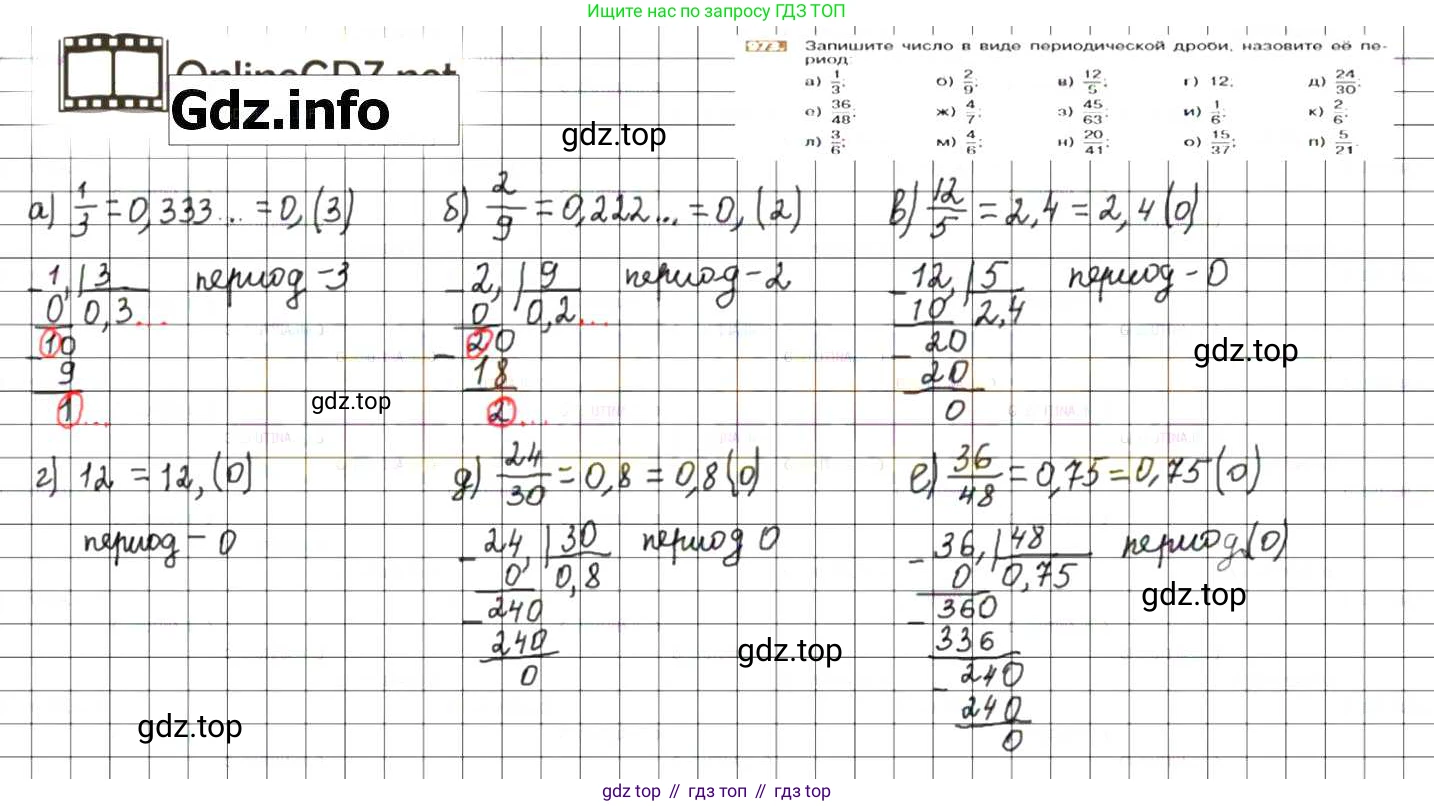 Ищите нас по запросу ГДЗ ТОП
OnlineGDZ.net
Gdz.info
gdz.top
973. Запишите число в виде периодической дроби, назовите её пе-
риод:
а) 1/3; б) 2/9; в) 12/5; г) 12; д) 24/30;
е) 36/48; ж) 4/7; з) 45/63; и) 1/6; к) 2/6;
л) 3/6; м) 4/6; н) 20/41; о) 15/37; п) 5/21.
а) 1/3 = 0,333... = 0,(3) б) 2/9 = 0,222... = 0,(2) в) 12/5 = 2,4 = 2,4(0)
1, 3 период - 3 2, 9 период - 2 12, 5 период - 0
0 0,3... 0 0,2... 10 2,4
10 20 20
9 18 20
1... 2... 0
gdz.top
gdz.top
г) 12 = 12,(0) д) 24/30 = 0,8 = 0,8(0) е) 36/48 = 0,75 = 0,75(0)
период - 0 24, 30 период 0 36, 48 период (0)
0 0,8 0 0,75
240 360
240 336
0 240
240
0
gdz.top
gdz.top
gdz.top
gdz top // гдз топ // гдз top